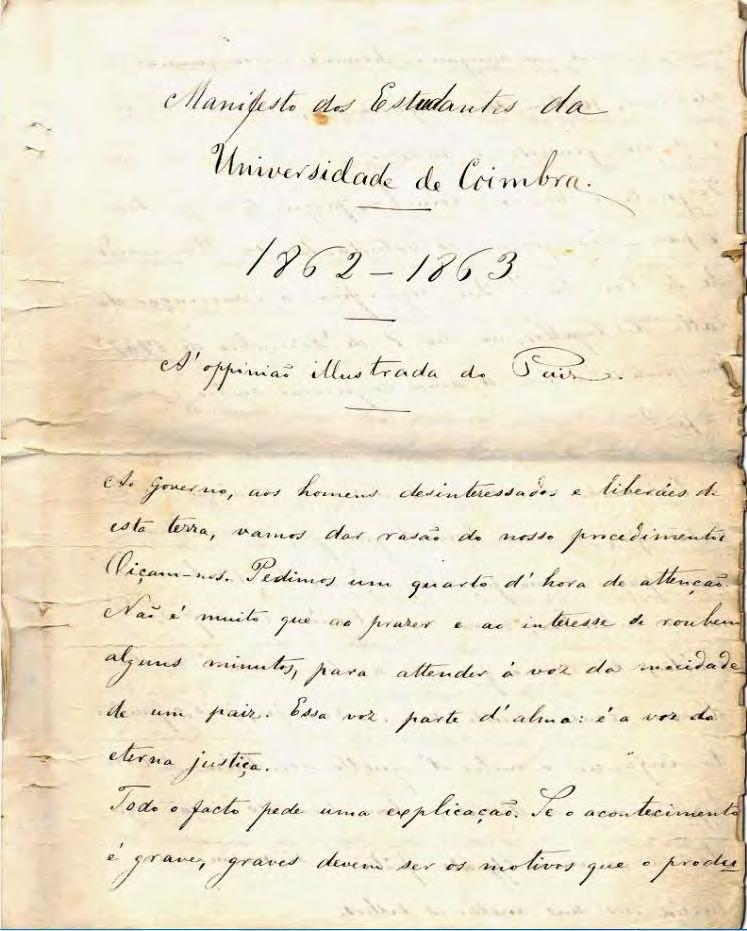 Manifesto dos Estudantes da
Universidade de Coimbra.
1862 – 1863
A' oppinião illustrada do Paiz.
Ao governo, aos homens desinteressados e liberáes de
esta terra, vamos dar rasão do nosso procedimento.
Oiçam-nos. Pedimos um quarto d'hora de attenção.
Não é muito que ao prazer e ao interesse se roubem
alguns minutos, para attender á voz da mocidade
de um paiz. Essa voz parte d'alma: é a voz da
eterna justiça.
Todo o facto pede uma explicação. Se o acontecimento
é grave, graves devem ser os motivos que o produ